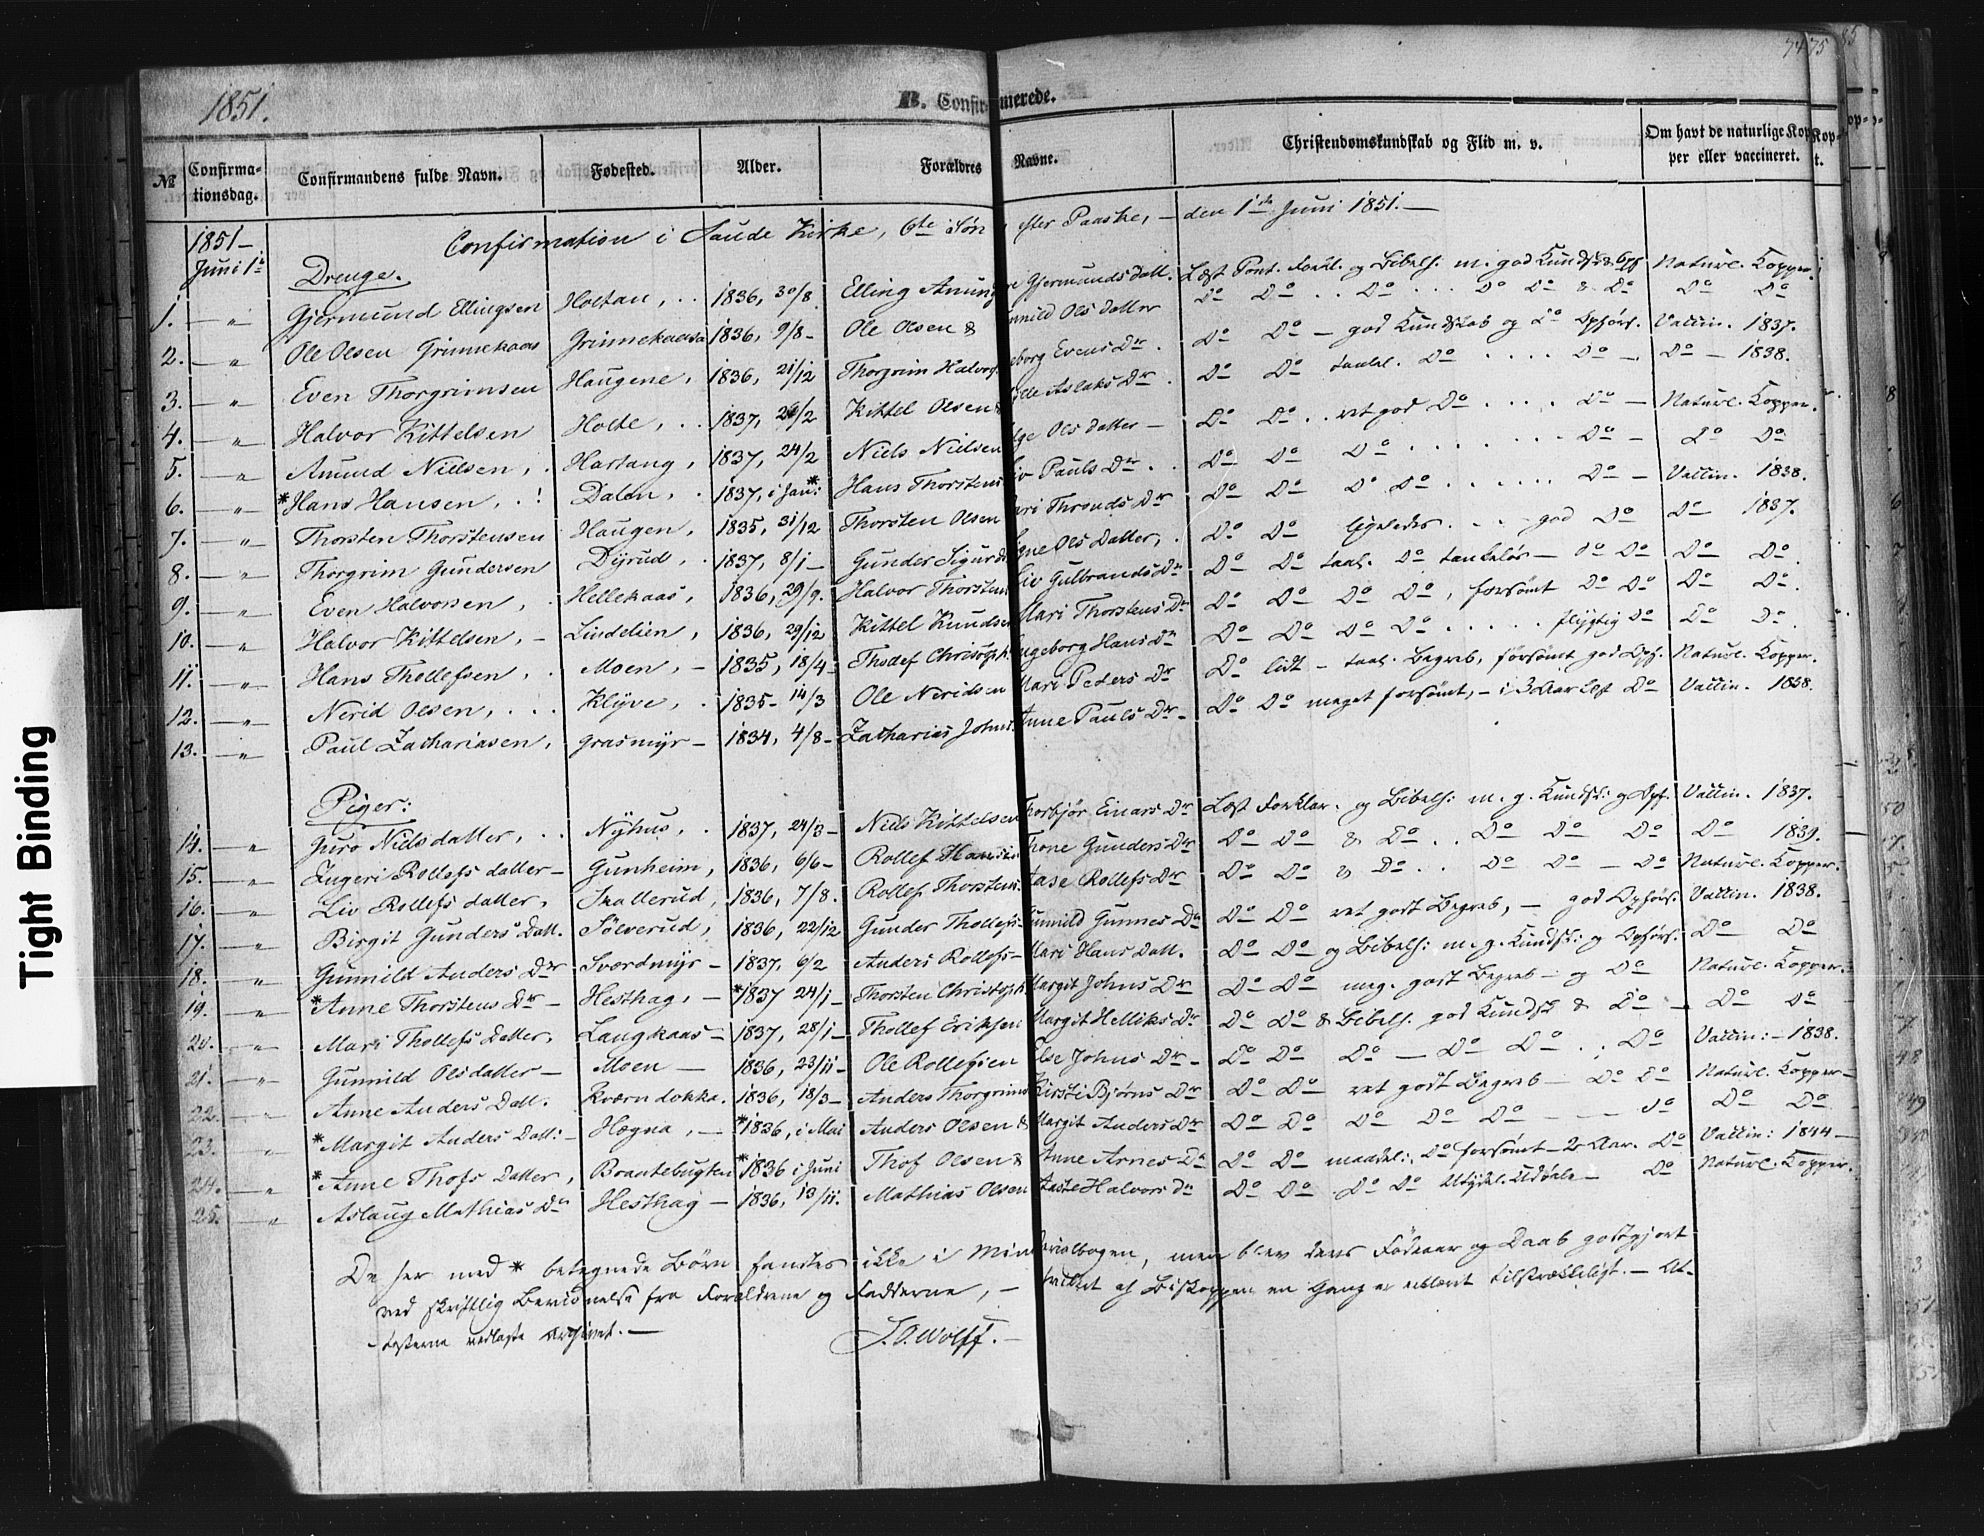 1851.
B. Confirmerede.
74 75
№ Confirma-tionsdag. Confirmandens fulde Navn. Fødested. Alder. Forældres Navne. Christendomskundskab og Flid m. v. Om havt de naturlige Kopper eller vaccineret.
1851 – Confirmation i Saude Kirke, 6te Søn efter Paaske, – den 1ste Juni 1851. –
Juni 1ste Drenge.
1. – " Gjermund Ellingsen Holtan, . . 1836, 30/8 Elling Amunds Gjermunds Datt. Læst Pont. Forkl. og Bibelh. m. god Kundsk. & Opf. Naturl. Kopper.
2. – " Ole Olsen Grinnekaas Grinnekaasa 1836, 9/8 – Ole Olsen & Gunnild Ols Datter Do Do . . Do . . . Do Do & Do Do Do
3. – " Even Thorgrimsen Haugene, 1836, 21/12 Thorgrim Halvors. Ingeborg Evens Dr. Do Do – god Kundskab og Do Opførs. Vaccin. 1837.
4. – " Halvor Kittelsen Holte, . . 1837, 24/2 Kittel Olsen & Aslaks Dr. Do Do taalel. Do . . . . Do – Do – 1838.
5. – " Amund Nielsen, . Hartang, 1837, 24/2 Niels Nielsen Ols Datter – Do Do . . ret god Do . . . . Do – Naturl. Kopper.
6. – " * Hans Hansen, . ! Dalen, . 1837, i Jan: * Hans Thorstens. Liv Pauls Dr. . Do Do Do . . . . . . . Do – Do Do
7. – " Thorsten Thorstensen Haugen, 1835, 31/12 Thorsten Olsen Kari Thronds Dr Do Do Do Do . . . . . . Do – Vaccin. 1838.
8. – " Thorgrim Gundersen Dyrud, . 1837, 8/1 – Gunder Sigurds. Ols Datter, . Do Do ligeledes . . . god Do Do – 1837.
9. – " Even Halvorsen, . Hellekaas, 1836, 29/9. Halvor Thorstens. Liv Gulbrands Dr Do Do taal. Do tankeløs – Do Do Do Do.
10. – " Halvor Kittelsen, – Lindelien, 1836, 29/12 Kittel Knudsen Mari Thorstens Dr Do Do Do Do, forsømt Do Do Do Do.
11. – " Hans Thollefsen, . Moen, – 1835, 18/4 – Thodef Christoph. Ingeborg Hans Dr Do Do Do Do . . . . . flygtig Do Do Do.
12. – " Nerid Olsen, . . . Klyve, . 1835 – 14/3 Ole Neridsen Mari Peders Dr Do lidt – taal. Begreb, forsømt god Opf. Naturl. Kopper.
13. – " Paul Zachariasen, Grasmyr – 1834, 4/8 – Zacharias Johns. Anne Pauls Dr – Do Do meget forsømt, – i 3 Aar læst Do Vaccin. 1838.
Piger:
14. – " Guro Nielsdatter, . . Nyhus, . 1837, 24/3 – Niels Kittelsen Thorbjør Einars Dr Læst Forklar. og Bibelh: m. g. Kundsk: g Opf. Vaccin. 1837.
15. – " Ingeri Rollefs datter – Gunheim, 1836, 6/6 – Rollef Hansen Thone Gunders Dr Do Do & Do . . Do Do Do Do 1839.
16. – " Liv Rollefs datter, Skallerud, 1836, 7/8. Rollef Thorstens. Aase Rollefs Dr Do Do & Do . . Do Do – Do Naturl. Kopper.
17. – " Birgit Gunders Datt. Sølverud, 1836, 22/12 Gunder Thollefs – Gunnild Gunnes Dr Do Do ret godt Begreb, – god Opførs. Vaccin. 1838.
18. – " Gunnild Anders Dr Sværdmyr – 1837, 6/2 Anders Rollefs – Mari Hans Datt. Do Do og Bibelh: m. g. Kundsk: g Opførs. Do Do
19. – " * Anne Thorstens Dr – Hesthag, – * 1837 24/1 – Thorsten Christoph. Margit Johns Dr Do Do meg. godt Begreb – og Do Naturl. Kopper.
20. – " Mari Thollefs Datter, Langkaas – 1837, 28/1 – Thollef Eriksen Margit Helliks Dr Do Do & Bibelh. god Kundsk & Do – Do Do
21. – " Gunnild Olsdatter – Moen – 1836, 23/11 – Ole Rollefsen Else Johns Dr – Do Do Do – Do Do . . Do Vaccin: – 1838.
22. – " Anne Anders Datt. Kværndokka. 1836, 18/3 – Anders Thorgrims Kirsti Bjørns Dr Do Do ret godt Begreb – Do Do Naturl. Kopper –
23. " * Margit Anders Datt: – Hægna, – * 1836, i Mai Anders Olsen & Margit Anders Dr Do Do Do Do Do – – – Do Do Do
24. – " * Anne Thofs Datter, Braatebugten * 1836 i Juni Thof Olsen & Anne Arnes Dr Do Do maadel: Do forsømt – 2 Aar. Do Vaccin: 1844 –
25. – " Aslaug Mathias Dr Hesthag – 1836, 13/11. Mathias Olsen Aaste Halvors Dr Do Do Do Do Utydel. Udtale – Do Naturl. Kopper.
De her med * betegnede Børn fandtes ikke i Ministerialbogen, men blev deres Fødeaar og Daab godtgjort
ved skriftlig Bevidnelse fra Forældrene og Fadderne, – hvilket af Biskoppen en Gang er erklæret tilstrækkeligt. – At-
testerne vedlagte Archivet. – J. O. Wolff. –
Tight Binding